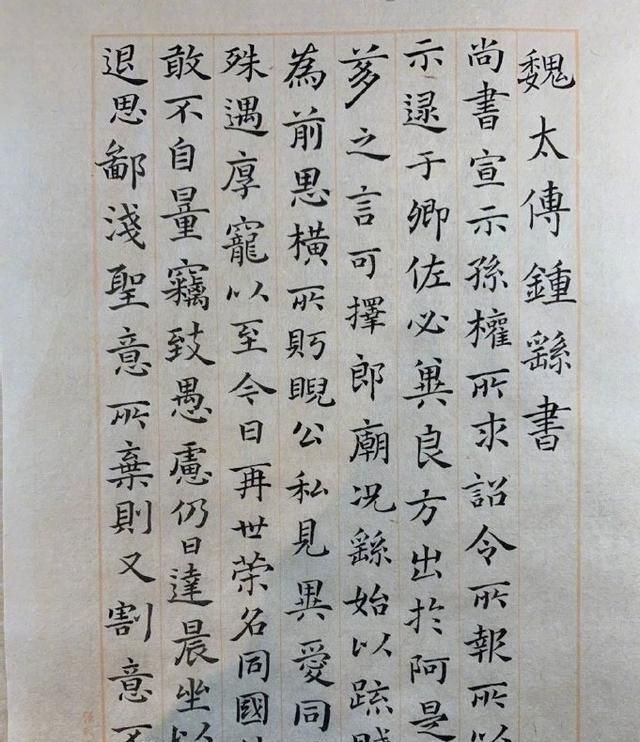 魏太傅鍾繇書
尚書宣示孫權所求詔令所報所以
示逮于卿佐必冀良方出於阿是
之言可擇郎廟况繇始以疏賤
為前恩橫所眄睨公私見異愛同
殊遇厚寵以至今日再世榮名同國
敢不自量竊致愚慮仍日達晨坐以
退思鄙淺聖意所棄則又割意不